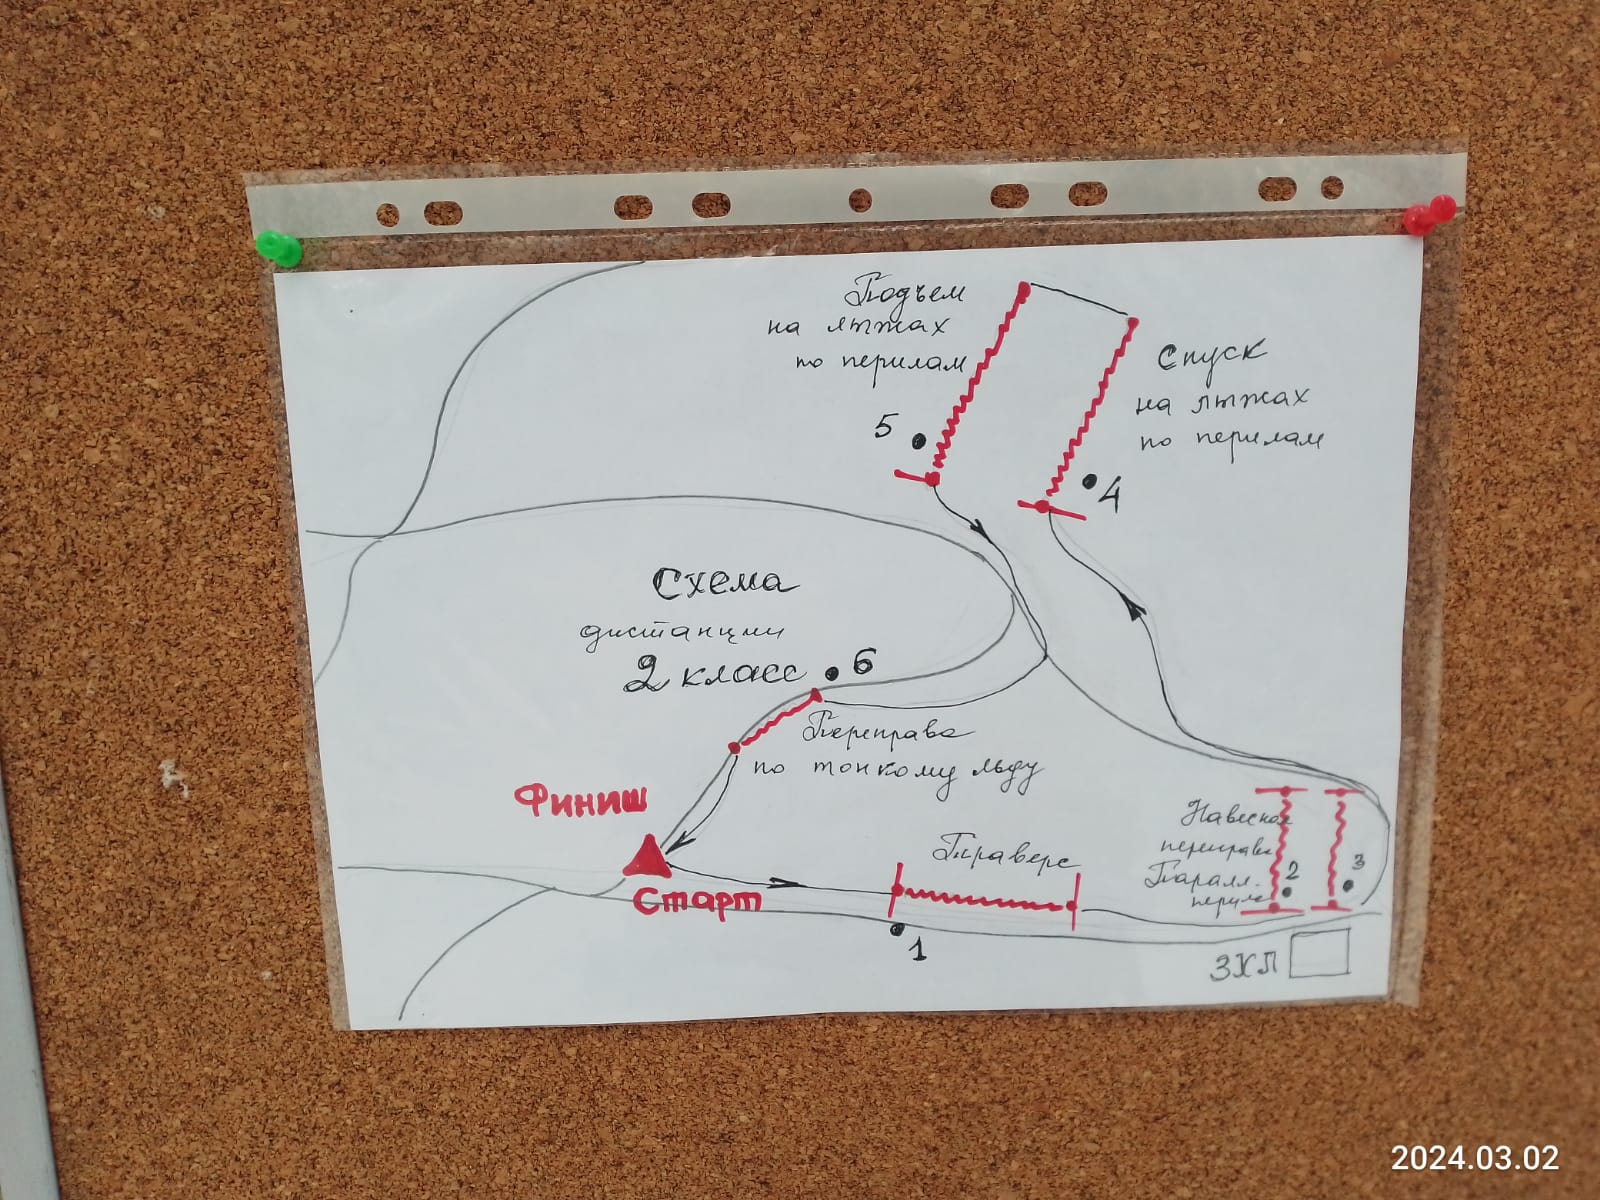 Подъем
на лыжах
по перилам
Спуск
на лыжах
по перилам
5
4
Схема
дистанции
2 класс
6
Переправа
по тонкому льду
Финиш
Старт
Траверс
1
Навесная
переправа
Паралл.
перила
2
3
ЗХЛ
2024.03.02